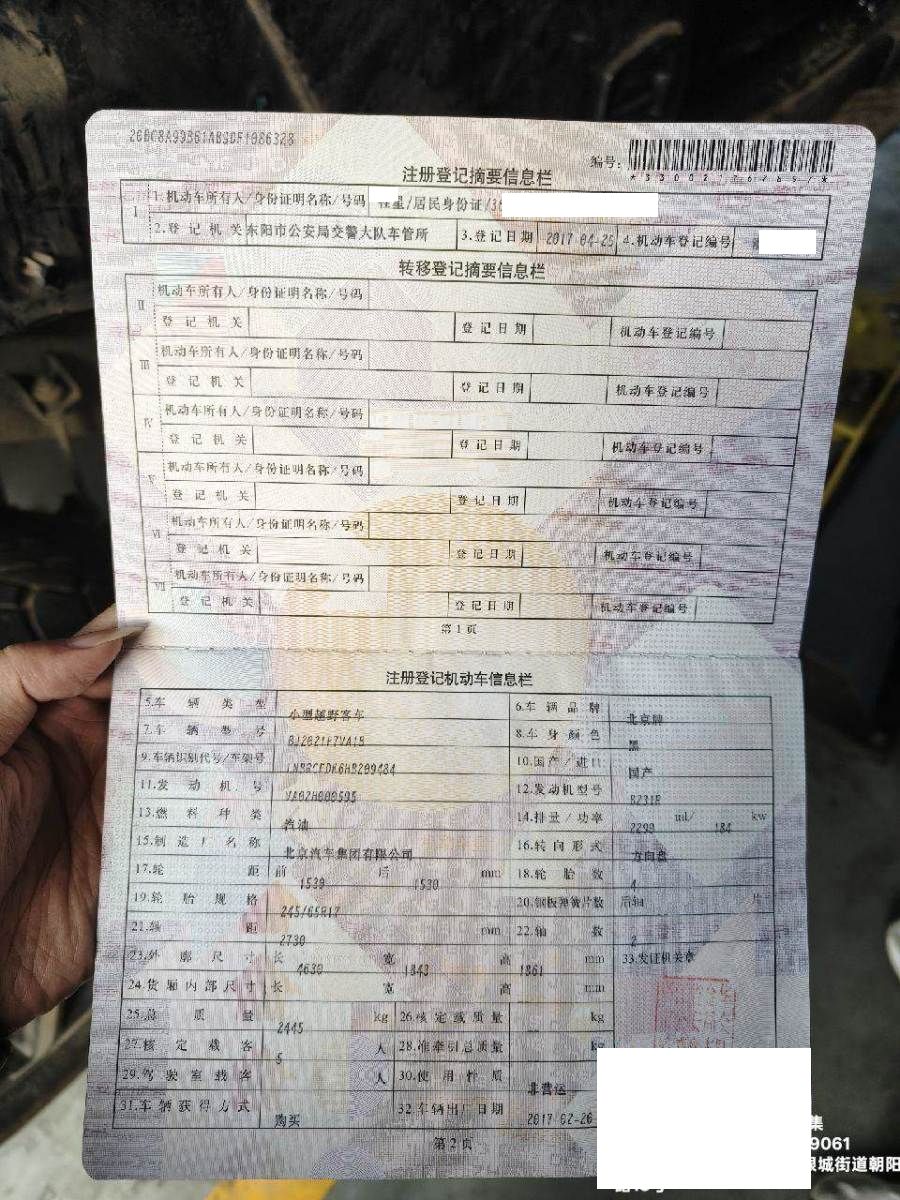 编号:
注册登记摘要信息栏
I 1.机动车所有人/身份证明名称/号码 星/居民身份证/3
2.登记机关 东阳市公安局交警大队车管所 3.登记日期 2017-04-25 4.机动车登记编号
转移登记摘要信息栏
II 机动车所有人/身份证明名称/号码
登记机关 登记日期 机动车登记编号
III 机动车所有人/身份证明名称/号码
登记机关 登记日期 机动车登记编号
IV 机动车所有人/身份证明名称/号码
登记机关 登记日期 机动车登记编号
V 机动车所有人/身份证明名称/号码
登记机关 登记日期 机动车登记编号
VI 机动车所有人/身份证明名称/号码
登记机关 登记日期 机动车登记编号
VII 机动车所有人/身份证明名称/号码
登记机关 登记日期 机动车登记编号
第1页
注册登记机动车信息栏
5.车辆类型 小型越野客车 6.车辆品牌 北京牌
7.车辆型号 8.车身颜色 黑
9.车辆识别代号/车架号 10.国产/进口 国产
11.发动机号 12.发动机型号 B231R
13.燃料种类 汽油 14.排量/功率 2299 ml/ 184 kw
15.制造厂名称 北京汽车集团有限公司 16.转向形式 方向盘
17.轮距 前 1539 后 1530 mm 18.轮胎数 4
19.轮胎规格 245/65R17 20.钢板弹簧片数 后轴 片
21.轴距 2730 mm 22.轴数 2
23.外廓尺寸 长 4630 宽 1843 高 1861 mm 33.发证机关章
24.货厢内部尺寸 长 宽 高 mm
25.总质量 2445 kg 26.核定载质量 kg
27.核定载客 5 人 28.准牵引总质量 kg
29.驾驶室载客 人 30.使用性质 非营运
31.车辆获得方式 购买 32.车辆出厂日期 2017-02-26
第2页
集
9061
城街道朝阳